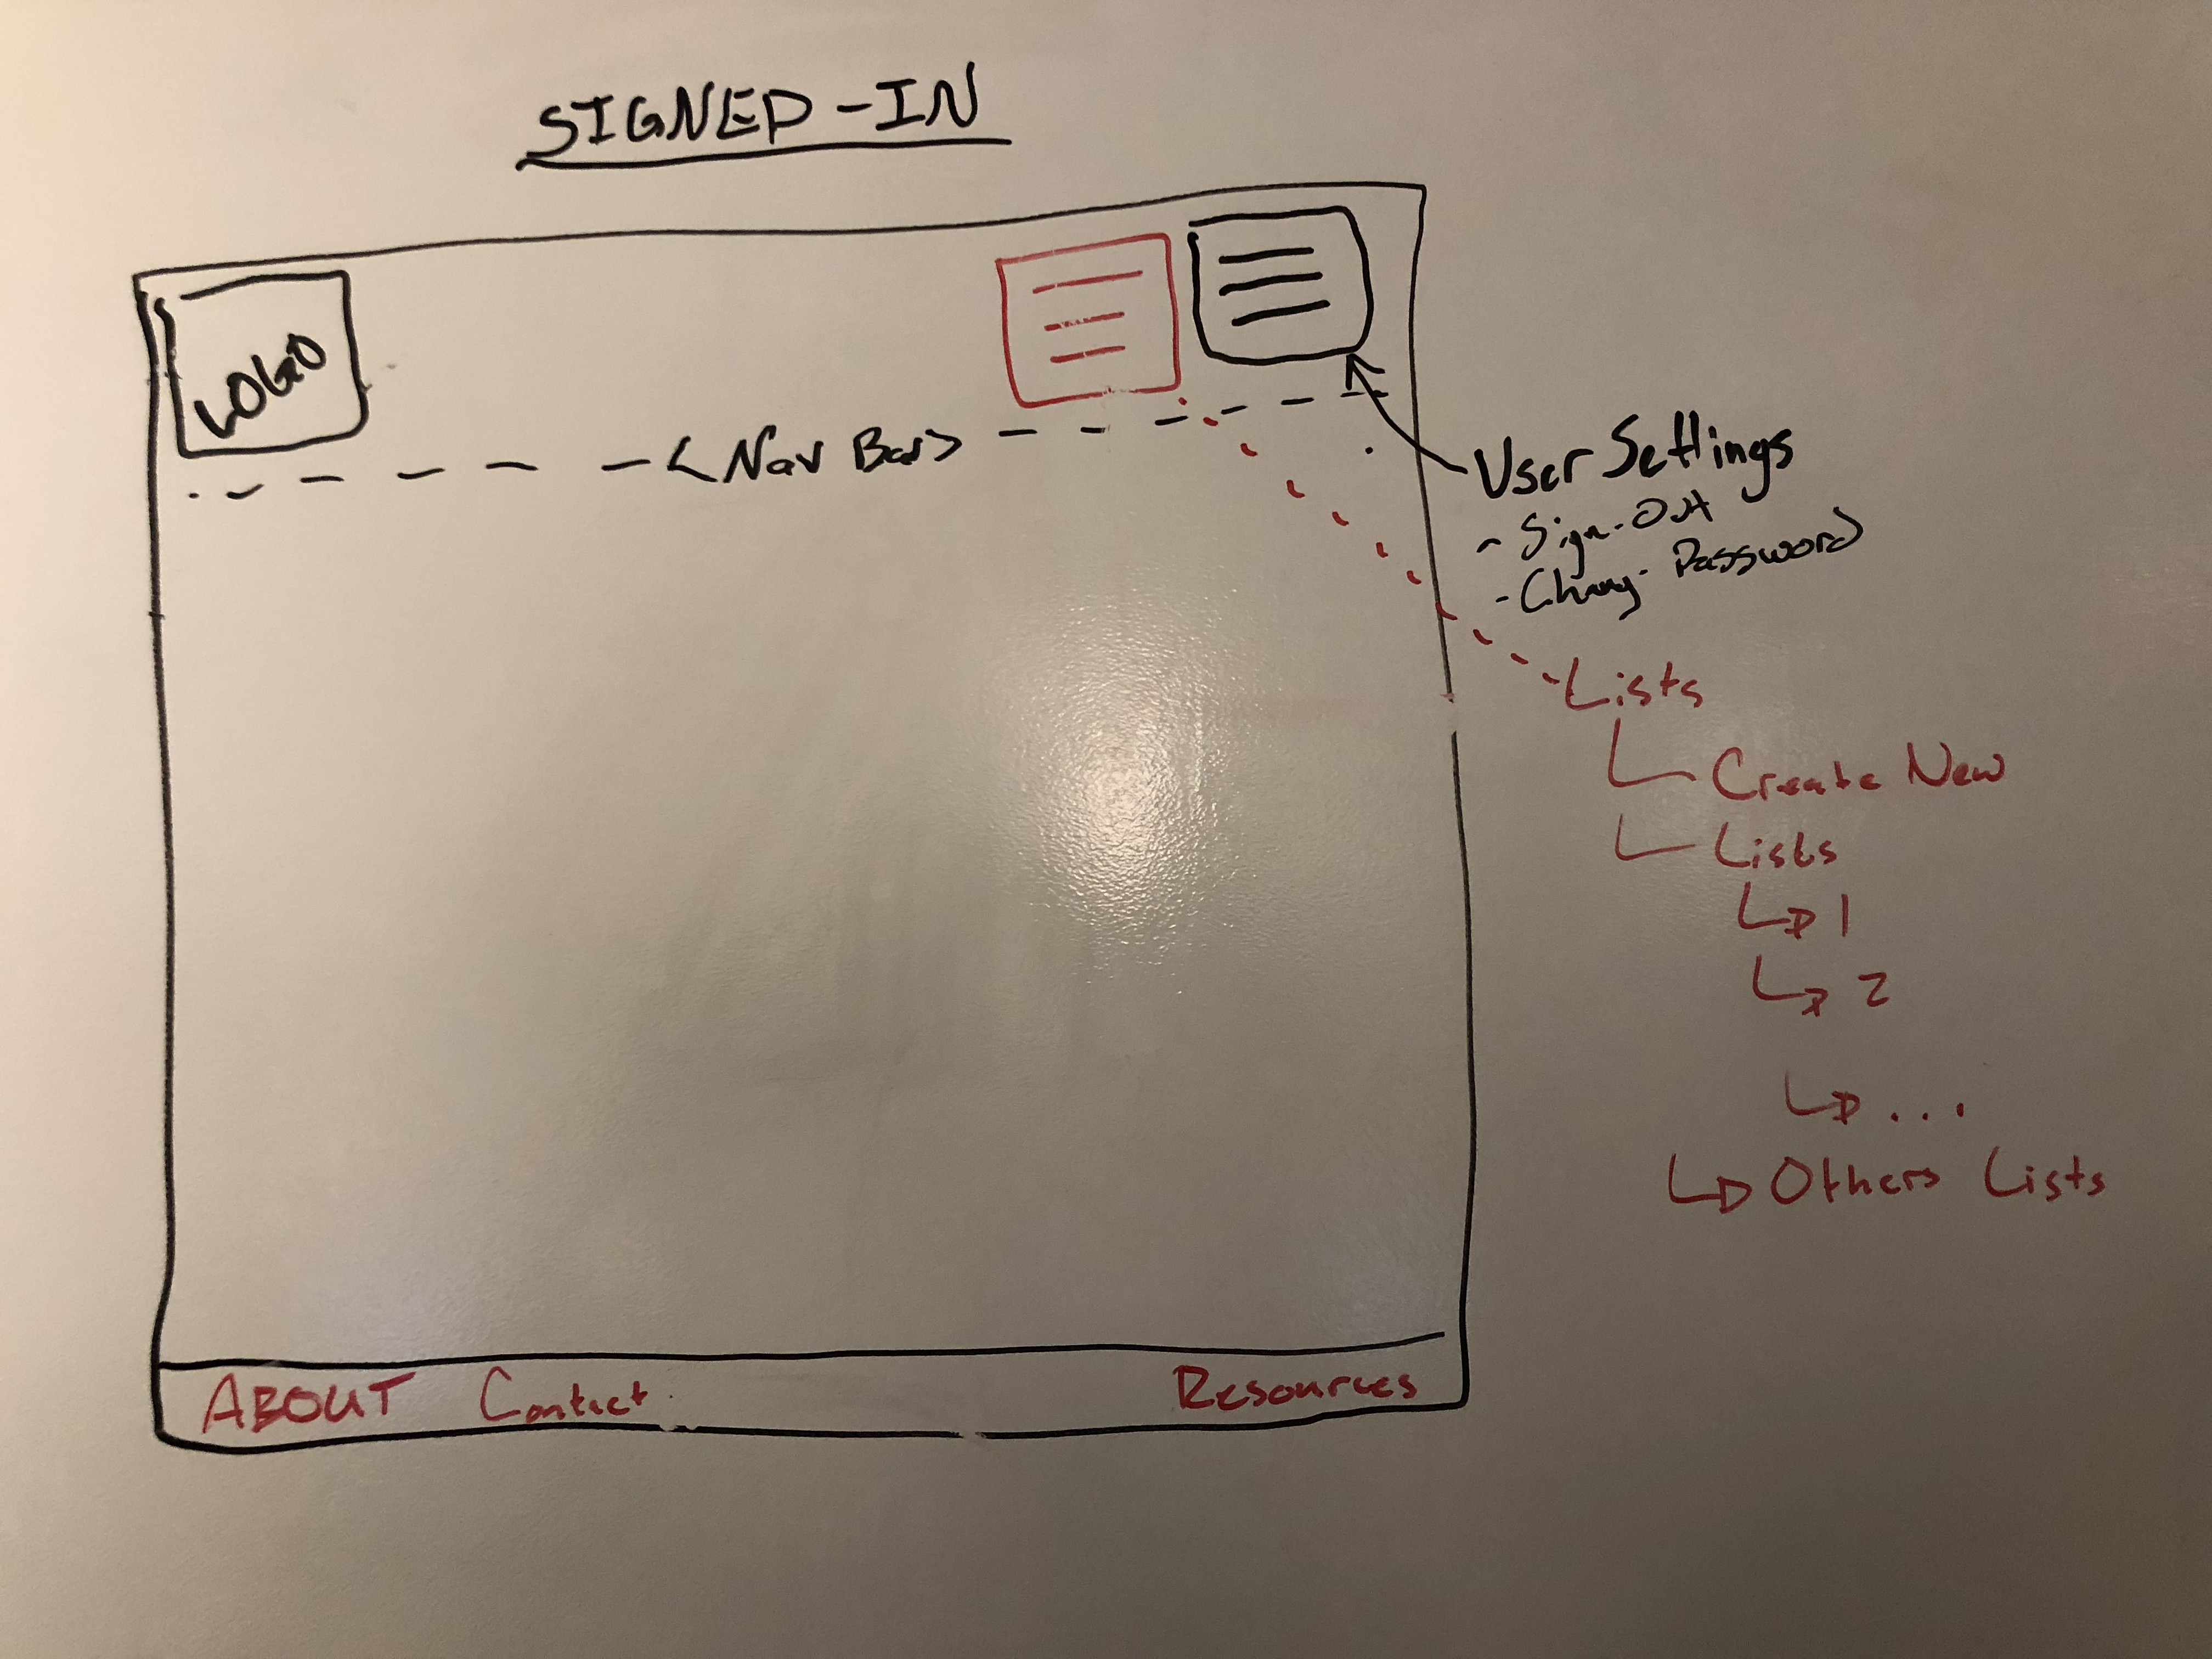 SIGNED-IN
LOGO
<Nav Bar>
User Settings
- Sign-Out
- Chang Password
Lists
Create New
Lists
1
2
...
Others Lists
ABOUT Contact Resources